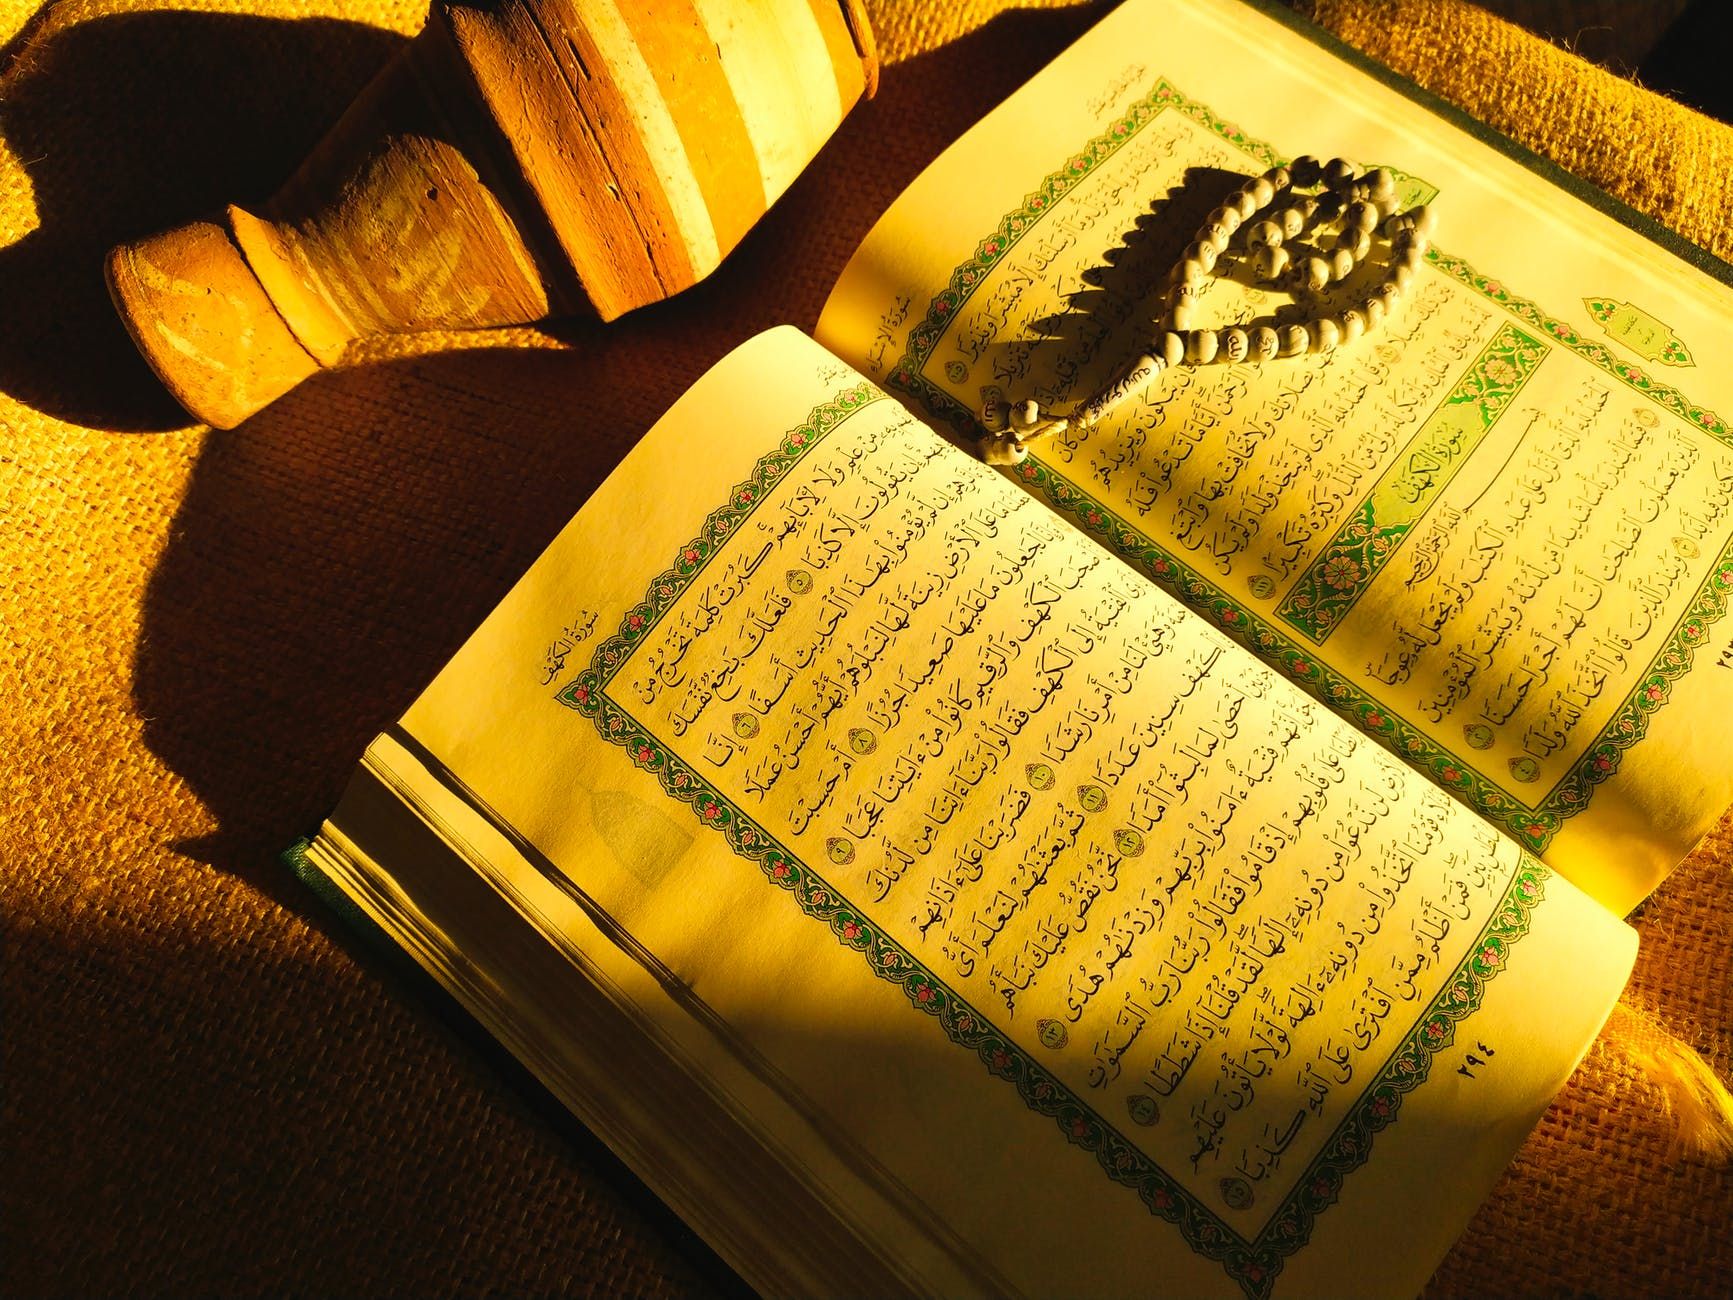 سُورَةُ الإِسْرَاءِ
وَبِٱلْحَقِّ أَنزَلْنَٰهُ وَبِٱلْحَقِّ نَزَلَ وَمَآ أَرْسَلْنَٰكَ إِلَّا مُبَشِّرًا وَنَذِيرًا ١٠٥
تَنزِيلًا
مِن قَبْلِهِۦٓ إِذَا
إِن كَانَ
يَبْكُونَ وَيَزِيدُهُمْ
ٱلرَّحْمَٰنَ أَيًّا مَّا تَدْعُوا۟ فَلَهُ
صَلَاتِكَ وَلَا تُخَافِتْ بِهَا وَٱبْتَغِ
وَقُلِ ٱلْحَمْدُ لِلَّهِ ٱلَّذِى لَمْ يَتَّخِذْ وَلَدًا وَلَمْ يَكُن
وَلِىٌّ مِّنَ ٱلذُّلِّ وَكَبِّرْهُ تَكْبِيرًا ١١١
سُورَةُ الكَهْفِ
بِسْمِ ٱللَّهِ ٱلرَّحْمَٰنِ ٱلرَّحِيمِ
ٱلْحَمْدُ لِلَّهِ ٱلَّذِىٓ أَنزَلَ عَلَىٰ عَبْدِهِ ٱلْكِتَٰبَ وَلَمْ يَجْعَل لَّهُۥ عِوَجَا ۜ
١ قَيِّمًا لِّيُنذِرَ بَأْسًا شَدِيدًا مِّن لَّدُنْهُ وَيُبَشِّرَ ٱلْمُؤْمِنِينَ
ٱلَّذِينَ يَعْمَلُونَ ٱلصَّٰلِحَٰتِ أَنَّ لَهُمْ أَجْرًا حَسَنًا ٢
أَبَدًا ٣ وَيُنذِرَ ٱلَّذِينَ قَالُوا۟ ٱتَّخَذَ ٱللَّهُ وَلَدًا ٤
سُورَةُ الكَهْفِ
مِنْ عِلْمٍ وَلَا لِءَابَآئِهِمْ ۚ كَبُرَتْ كَلِمَةً تَخْرُجُ مِنْ
إِن يَقُولُونَ إِلَّا كَذِبًا ٥ فَلَعَلَّكَ بَٰخِعٌ نَّفْسَكَ
إِن لَّمْ يُؤْمِنُوا۟ بِهَٰذَا ٱلْحَدِيثِ أَسَفًا ٦ إِنَّا
مَا عَلَى ٱلْأَرْضِ زِينَةً لَّهَا لِنَبْلُوَهُمْ أَيُّهُمْ أَحْسَنُ عَمَلًا
وَإِنَّا لَجَٰعِلُونَ مَا عَلَيْهَا صَعِيدًا جُرُزًا ٨ أَمْ حَسِبْتَ
أَصْحَٰبَ ٱلْكَهْفِ وَٱلرَّقِيمِ كَانُوا۟ مِنْ ءَايَٰتِنَا عَجَبًا ٩
أَوَى ٱلْفِتْيَةُ إِلَى ٱلْكَهْفِ فَقَالُوا۟ رَبَّنَآ ءَاتِنَا مِن لَّدُنكَ
رَحْمَةً وَهَيِّئْ لَنَا مِنْ أَمْرِنَا رَشَدًا ١٠ فَضَرَبْنَا عَلَىٰٓ ءَاذَانِهِمْ
ٱلْكَهْفِ سِنِينَ عَدَدًا ١١ ثُمَّ بَعَثْنَٰهُمْ لِنَعْلَمَ أَىُّ
أَحْصَىٰ لِمَا لَبِثُوٓا۟ أَمَدًا ١٢ نَّحْنُ نَقُصُّ عَلَيْكَ نَبَأَهُم
إِنَّهُمْ فِتْيَةٌ ءَامَنُوا۟ بِرَبِّهِمْ وَزِدْنَٰهُمْ هُدًى ١٣
عَلَىٰ قُلُوبِهِمْ إِذْ قَامُوا۟ فَقَالُوا۟ رَبُّنَا رَبُّ ٱلسَّمَٰوَٰتِ
لَن نَّدْعُوَا۟ مِن دُونِهِۦٓ إِلَٰهًا ۖ لَّقَدْ قُلْنَآ إِذًا شَطَطًا ١٤
قَوْمُنَا ٱتَّخَذُوا۟ مِن دُونِهِۦٓ ءَالِهَةً ۖ لَّوْلَا يَأْتُونَ عَلَيْهِم
بَيِّنٍ ۖ فَمَنْ أَظْلَمُ مِمَّنِ ٱفْتَرَىٰ عَلَى ٱللَّهِ كَذِبًا ١٥
٢٩٤